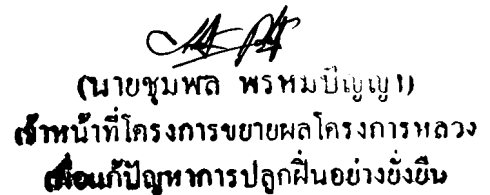 (นายชุมพล พรหมปัญญา)
เจ้าหน้าที่โครงการขยายผลโครงการหลวง
เพื่อแก้ปัญหาการปลูกฝิ่นอย่างยั่งยืน